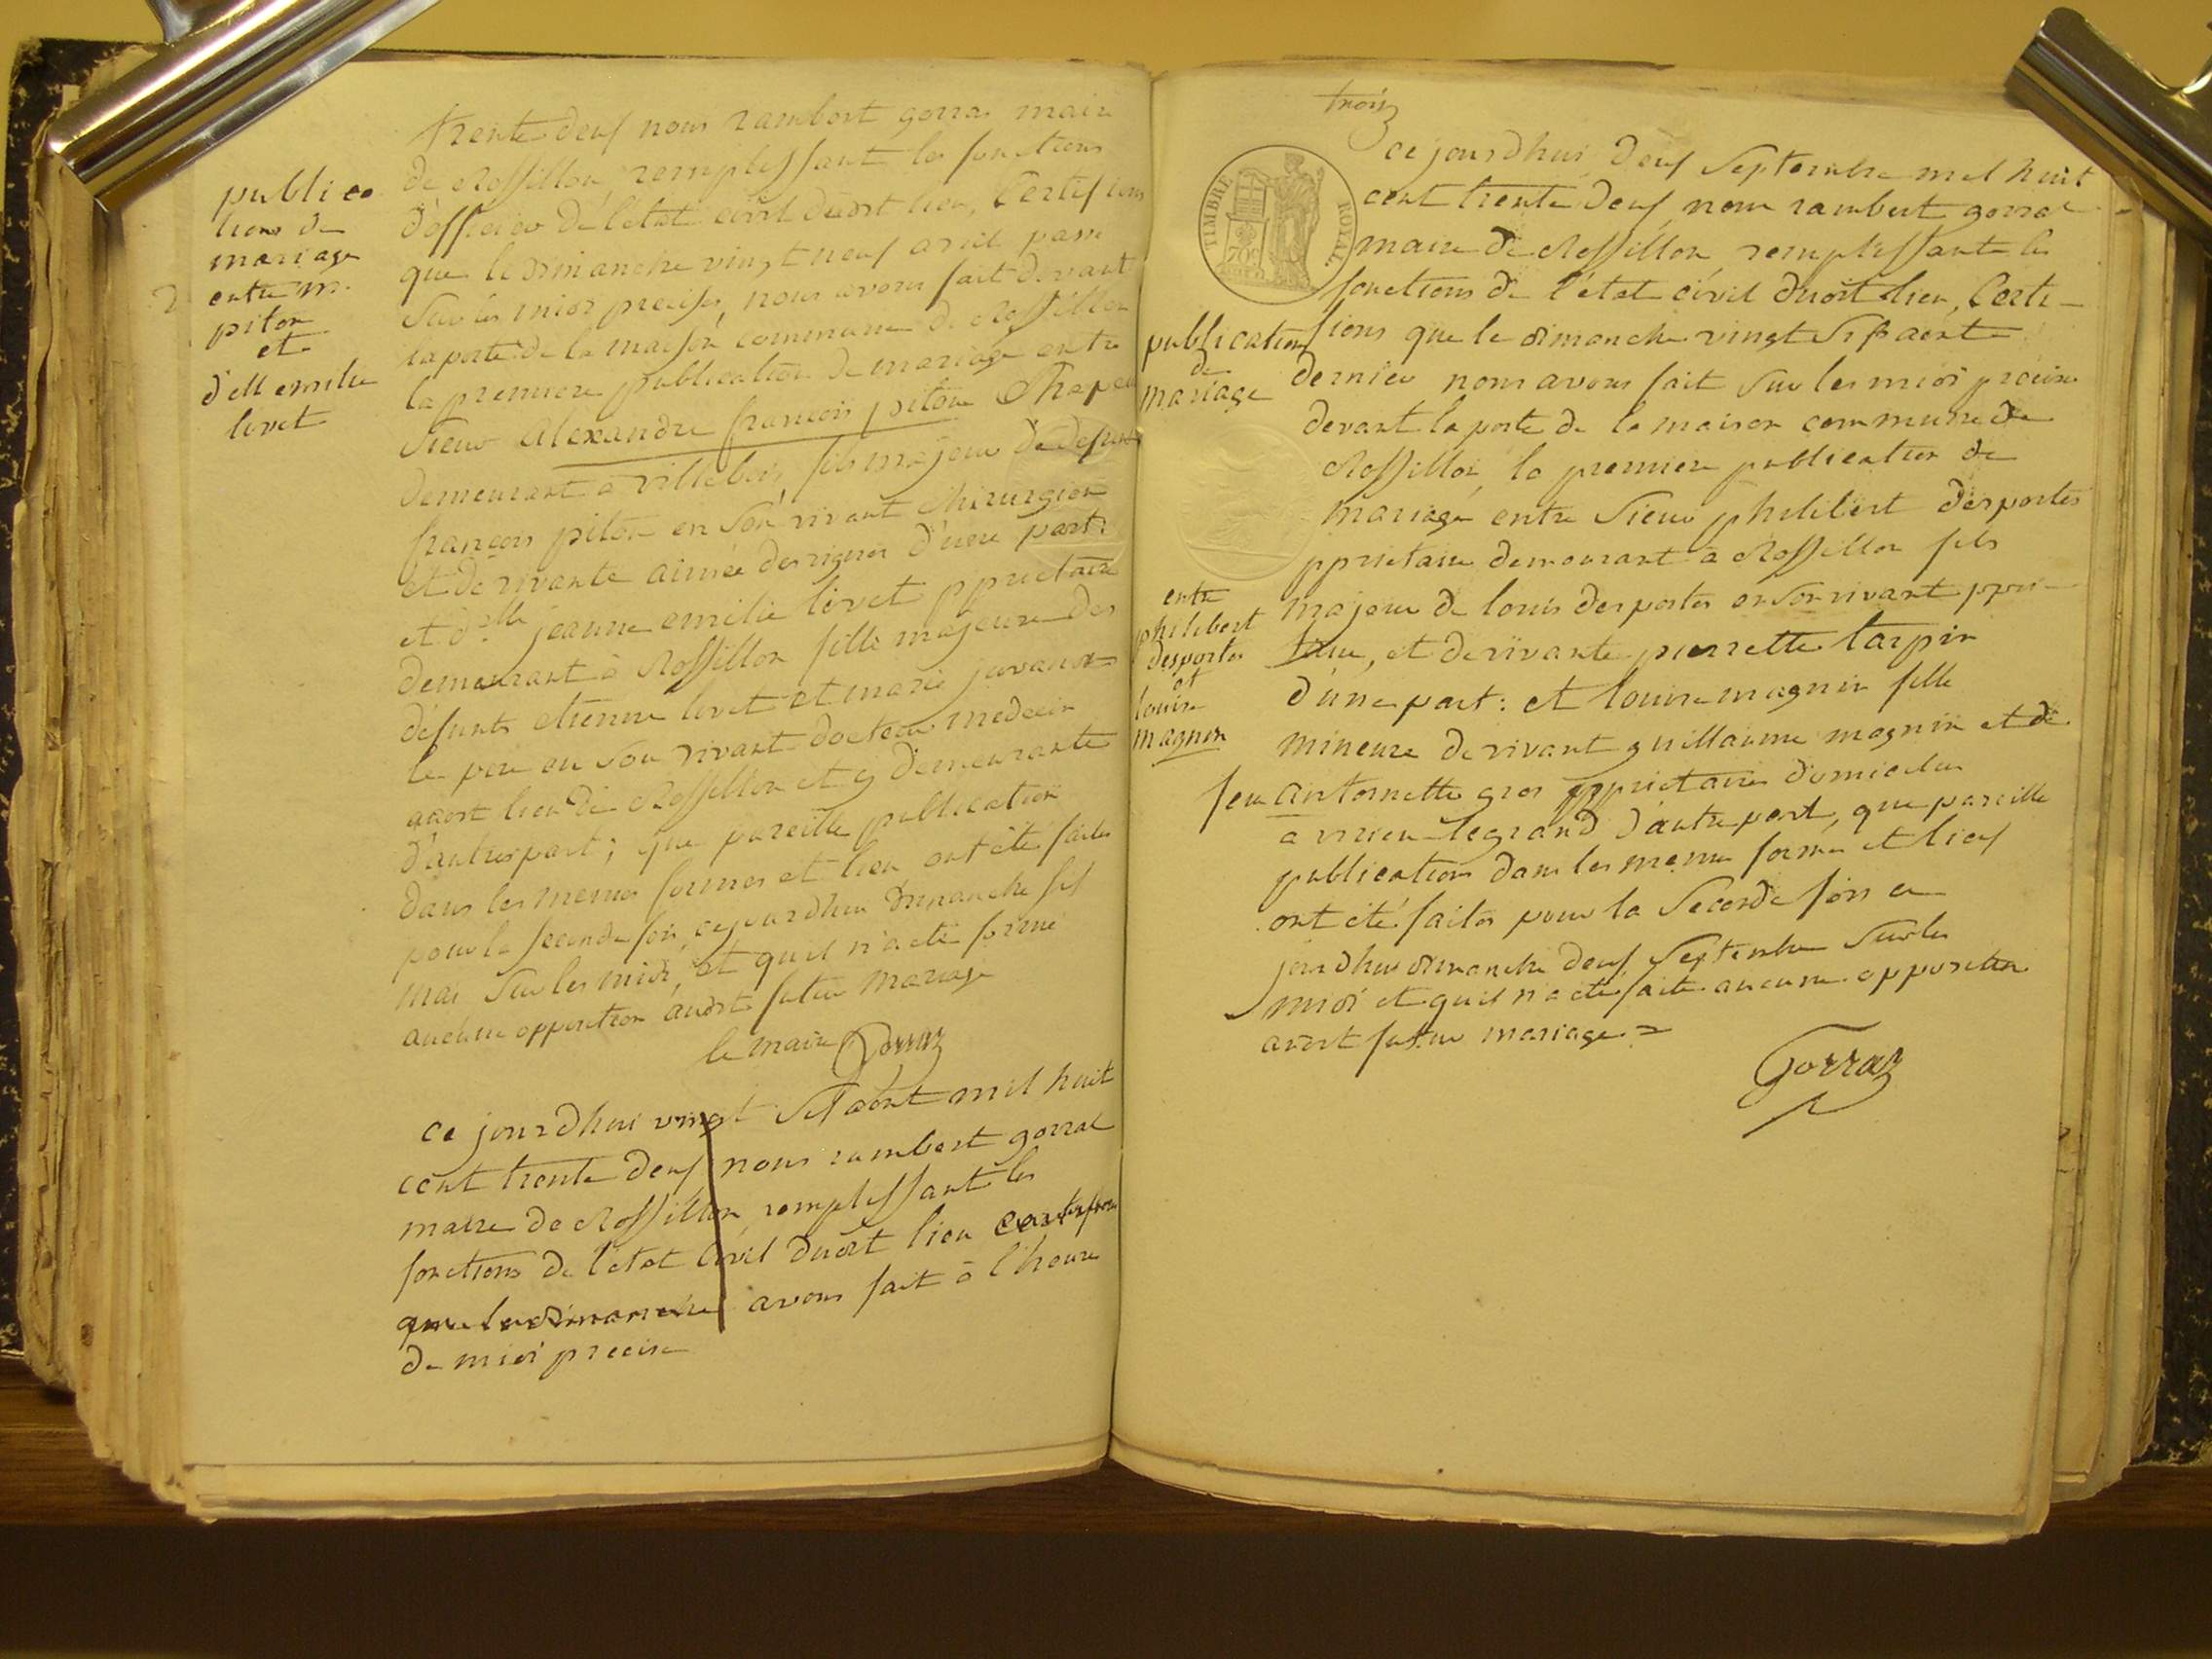 publica
tions de
mariage
entre m.
piton
et
d'elle emilie
livet
2
trente deux nous rambert gorraz maire
de Rossillon, remplissant les fonctions
d'officier de l'etat civil dudit lieu, Certifions
que le dimanche vingt neuf avril passé
Sur les midi precises, nous avons fait devant
la porte de la maison commune de Rossillon
la premiere publication de mariage entre
Sieur Alexandre françois piton
demeurant a villebois, fils majeur de defunt
françois piton en Son vivant chirurgien
et de vivante aimée desvignes d'une part:
et d'elle jeanne emilie livet pprietaire
demeurant à Rossillon fille majeure des
défunts etienne livet et marie
le pere en Son vivant docteur medecin
audit lieu de Rossillon et y demeurante
d'autre part; que pareille publication
dans les memes formes et lieu ont été faites
pour la seconde fois, cejourdhui dimanche six
mai Sur les midi, et qu'il n'a eté formé
aucune opposition audit futur mariage
le maire Gorraz
ce jourdhui vingt Sept août mil huit
cent trente deux nous rambert gorraz
maire de Rossillon, remplissant les
fonctions de l'etat civil dudit lieu certifions
que le dimanche avons fait à l'heure
de midi precise
trois
TIMBRE ROYAL.
70c
ce jourdhui deux Septembre mil huit
cent trente deux, nous rambert gorraz
maire de Rossillon remplissant les
fonctions de l'état civil dudit lieu, Certi-
fions que le dimanche vingt Six aout
dernier nous avons fait Sur les midi précise
devant la porte de la maison commune de
Rossillon, la premiere publication de
mariage entre Sieur philibert desportes
pprietaire demeurant à Rossillon fils
majeur de louis desportes en Son vivant ppri-
taire, et de vivante pierrette tarpin
d'une part: et louise magnin fille
mineure de vivant guillaume magnin et de
feu antoinette gros pprietaires domicilier
a virieu legrand d'autre part, que pareille
publications dans les meme formes et lieux
ont été faites pour la Seconde fois ce
jourdhui dimanche deux Septembre Sur les
midi et qu'il n'a eté faite aucune opposition
audit futur mariage =
Gorraz
publication
de
mariage
entre
philibert
desportes
et
louise
magnin